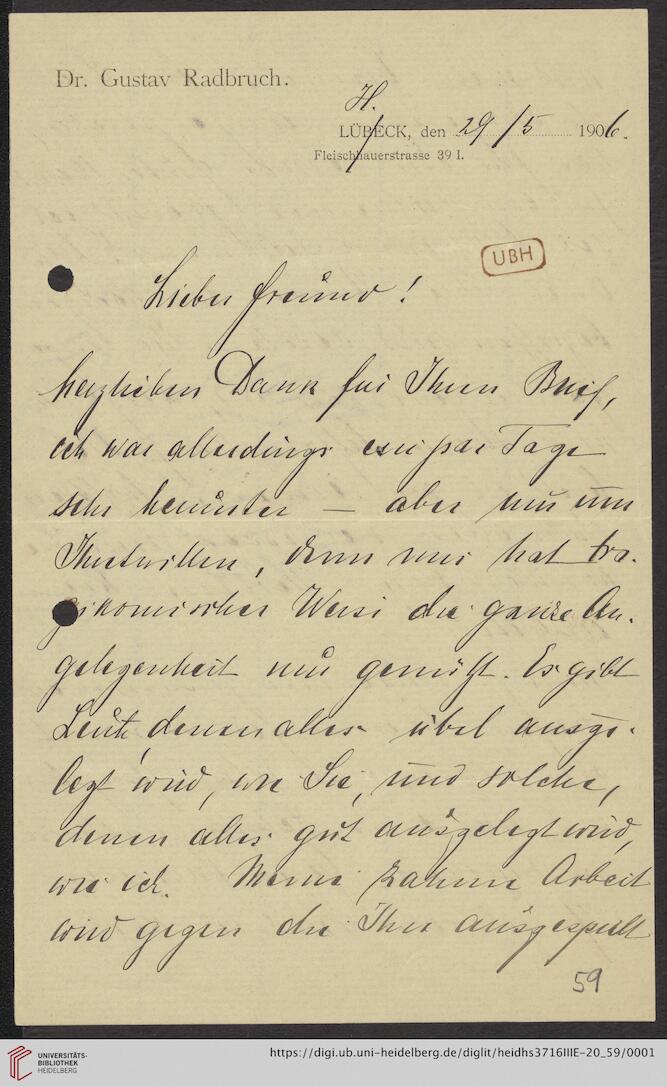 Dr. Gustav Radbruch.
H.
LÜBECK, den 29/5 1906.
Fleischhauerstrasse 39 I.
UBH
Lieber Freund!
herzlichen Dank für Ihren Brief,
ich war allerdings ein paar Tage
sehr herunter — aber nur um
Ihretwillen, denn mir hat tra-
gikomischer Weise die ganze An-
gelegenheit nur genützt. Es gibt
Leute, denen alles übel ausge-
legt wird, wie Sie, und solche,
denen alles gut ausgelegt wird,
wie ich. Meine zahme Arbeit
wird gegen die Ihre ausgespielt
59
UNIVERSITÄTS-
BIBLIOTHEK
HEIDELBERG
https://digi.ub.uni-heidelberg.de/diglit/heidhs3716IIIE-20_59/0001